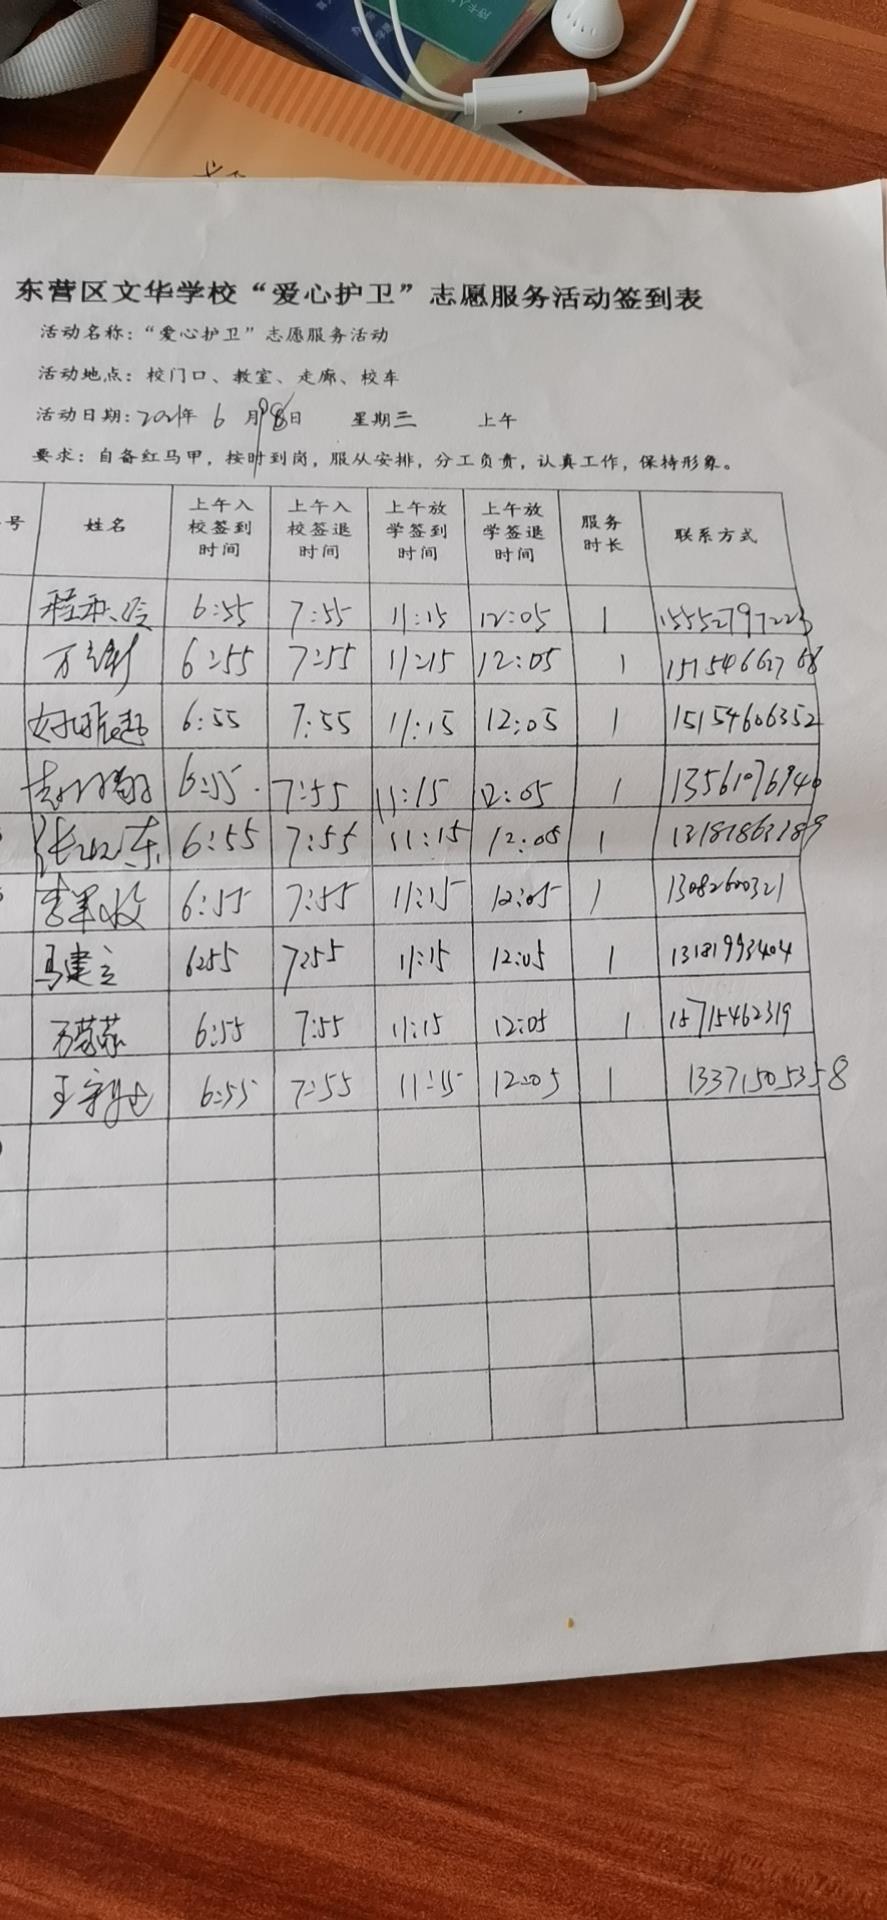 东营区文华学校“爱心护卫”志愿服务活动签到表
活动名称：“爱心护卫”志愿服务活动
活动地点：校门口、教室、走廊、校车
活动日期：2021年 6 月 日 星期三 上午
要求：自备红马甲，按时到岗，服从安排，分工负责，认真工作，保持形象。
号 姓名 上午入校签到时间 上午入校签退时间 上午放学签到时间 上午放学签退时间 服务时长 联系方式
6:55 7:55 11:15 12:05 1 15552797223
6:55 7:55 11:15 12:05 1 15154662768
6:55 7:55 11:15 12:05 1 15154606352
6:55 7:55 11:15 12:05 1 13561076940
6:55 7:55 11:15 12:05 1
6:55 7:55 11:15 12:05 1 13082600321
马建立 6:55 7:55 11:15 12:05 1 13181993404
6:55 7:55 11:15 12:05 1 15715462319
6:55 7:55 11:15 12:05 1 13371505358